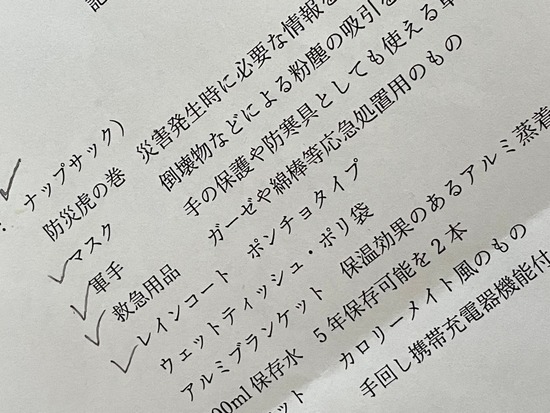 ナップサック)
防災虎の巻 災害発生時に必要な情報を
マスク 倒壊物などによる粉塵の吸引を
軍手 手の保護や防寒具としても使える
救急用品 ガーゼや綿棒等応急処置用のもの
レインコート ポンチョタイプ
ウェットティッシュ・ポリ袋
アルミブランケット 保温効果のあるアルミ蒸着
00ml保存水 5年保存可能を2本
ット カロリーメイト風のもの
手回し携帯充電器機能付